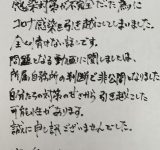 感染対策が不完全だった為に
コロナ感染を引き越してしまいました。
全く情けない話です。
問題となる動画に関しましては、
所属自教所の判断で非公開になりました
自分たちの対策のせいで引き越した
可能性があります。
誠に申し訳ございませんでした。